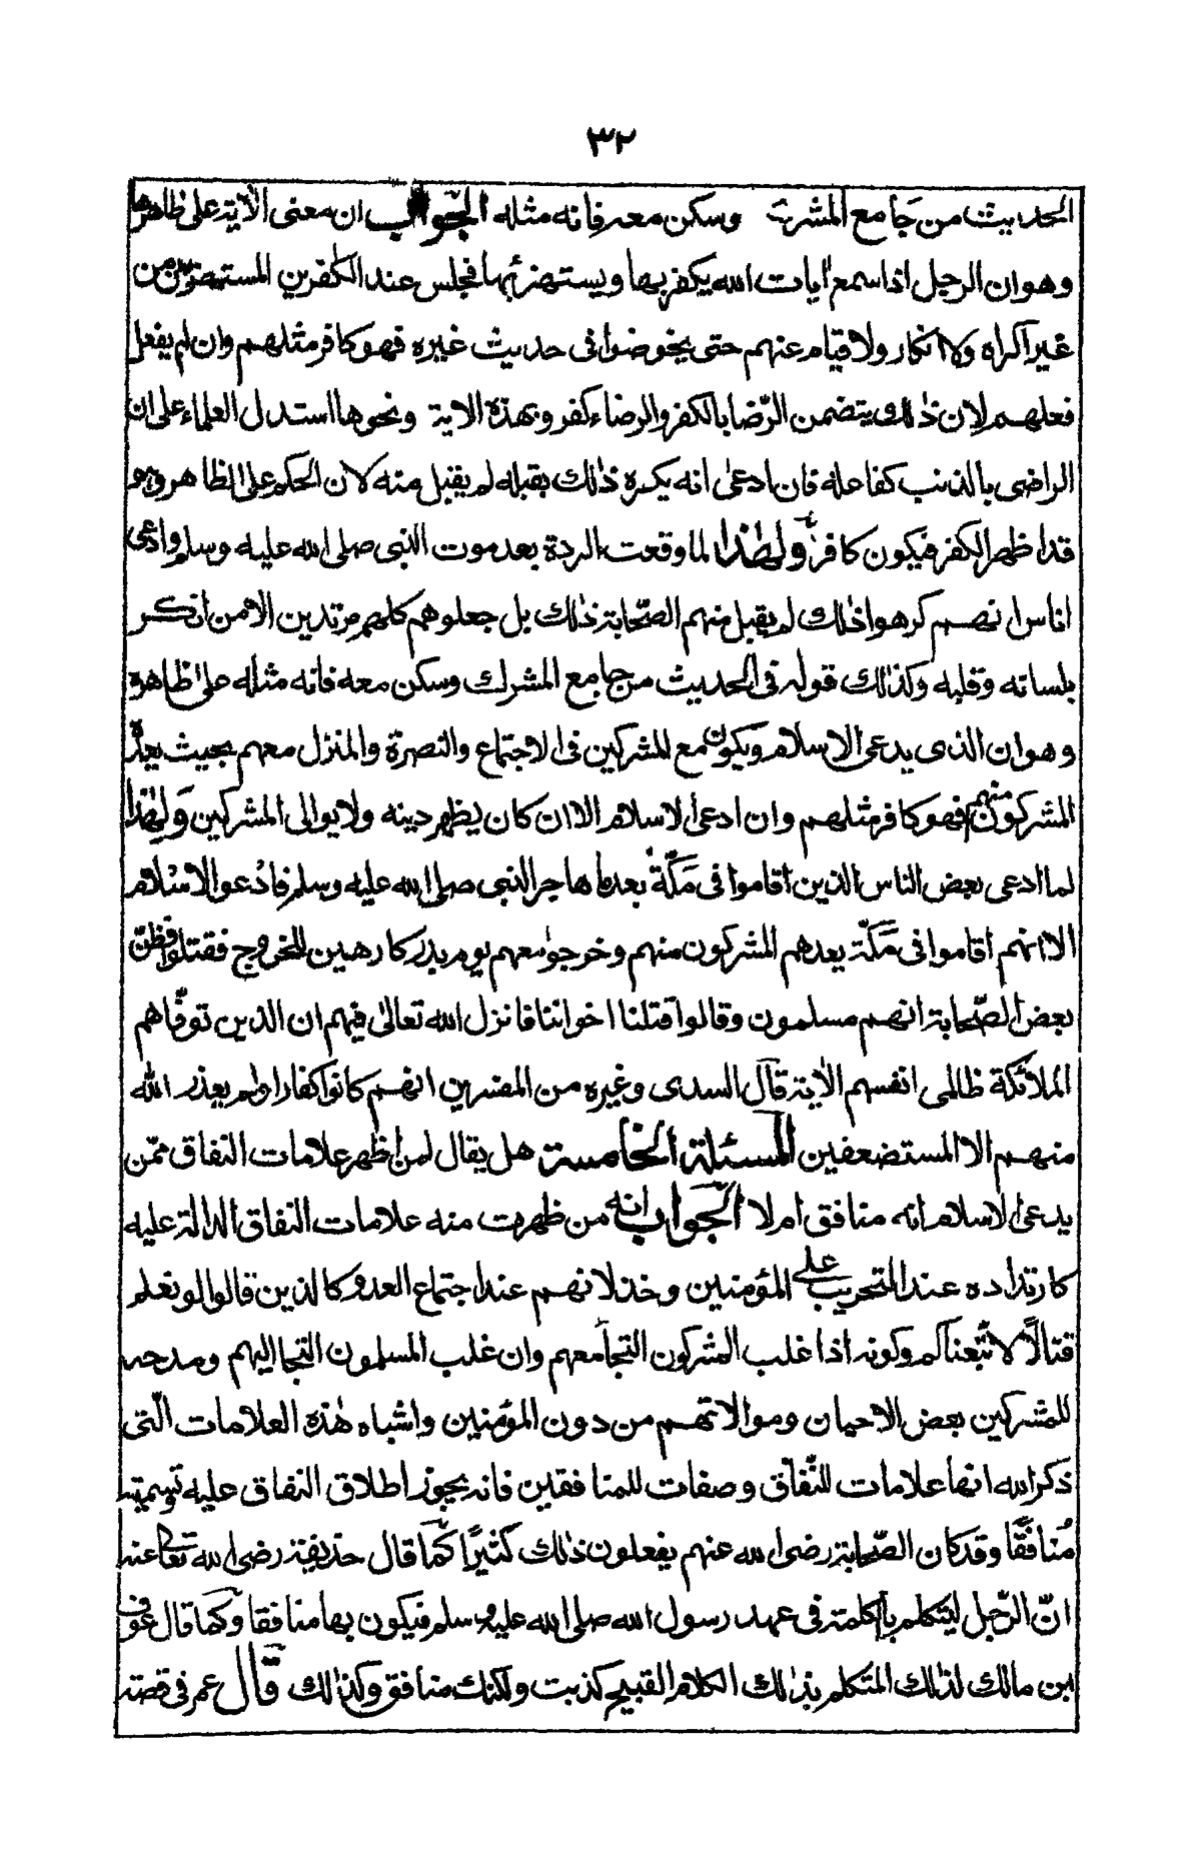 ٣٢
الحديث من جامع المشرك وسكن معه فانه مثله الجواب ان معنى الآية على ظاهرها
وهو ان الرجل اذا سمع آيات الله يكفر بها ويستهزئ بها فجلس عند الكفرين المستهزئين من
غير اكراه ولا انكار ولا قيام عنهم حتى يخوضوا فى حديث غيره فهو كافر مثلهم وان لم يفعل
فعلهم لان ذلك يتضمن الرّضا بالكفر والرضاء كفر وبهذه الاية ونحوها استدل العلماء على ان
الراضى بالذنب كفاعله فان ادعى انه يكره ذلك بقلبه لم يقبل منه لان الحكم على الظاهر وهو
قد اظهر الكفر فيكون كافرا ولهذا لما وقعت الردة بعد موت النبى صلى الله عليه وسلم وادعى
اناس انهم كرهوا ذلك لم يقبل منهم الصّحابة ذلك بل جعلوهم كلهم مرتدين الا من انكر
بلسانه وقلبه وكذلك قوله فى الحديث من جامع المشرك وسكن معه فانه مثله على ظاهره
وهو ان الذى يدعى الاسلام ويكون مع المشركين فى الاجتماع والنصرة والمنزل معهم بحيث يعدّه
المشركون منهم فهو كافر مثلهم وان ادعى الاسلام الا ان كان يظهر دينه ولا يوالى المشركين وَلِهٰذا
لما ادعى بعض الناس الذين اقاموا فى مَكّةَ بعد ما هاجر النبى صلى الله عليه وسلم فادعوا الاسْلام
الا انهم اقاموا فى مَكّة يعدهم المشركون منهم وخرجوا معهم يوم بدر كارهين للخروج فقتلوا فظنّ
بعض الصّحابة انهم مسلمون وقالوا قتلنا اخواننا فانزل الله تعالىٰ فيهم ان الذين توفّاهم
الملائكة ظالمى انفسهم الآية قال السدى وغيره من المفسرين انهم كانوا كفارا ولم يعذر الله
منهم الا المستضعفين المسئلة الخامسة هل يقال لمن اظهر علامات النفاق ممّن
يدعى الاسلام انه منافق ام لا الجواب انه من ظهرت منه علامات النفاق الدالة عليه
كارتداده عند التحزيب على المؤمنين وخذلانهم عند اجتماع العدو كالذين قالوا لو نعلم
قتالًا لاتّبعناكم وكونه اذا غلب المشركون التجأ معهم وان غلب المسلمون التجا اليهم ومدحه
للمشركين بعض الاحيان وموالاتهم من دون المؤمنين واشباه هٰذه العلامات الّتى
ذكر الله انها علامات للنّفاق وصفات للمنافقين فانه يجوز اطلاق النفاق عليه وتسميته
مُنافقًا وقد كان الصّحابة رضى الله عنهم يفعلون ذلك كثيرًا كما قال حذيفة رضى الله تعالى عنه
انّ الرّجل ليتكلم بالكلمة فى عهد رسول الله صلى الله عليه وسلم فيكون بها منافقا وكما قال عوف
بن مالك لذلك المتكلم بذلك الكلام القبيح كذبت ولكنك منافق وكذلك قال عمر فى قصة